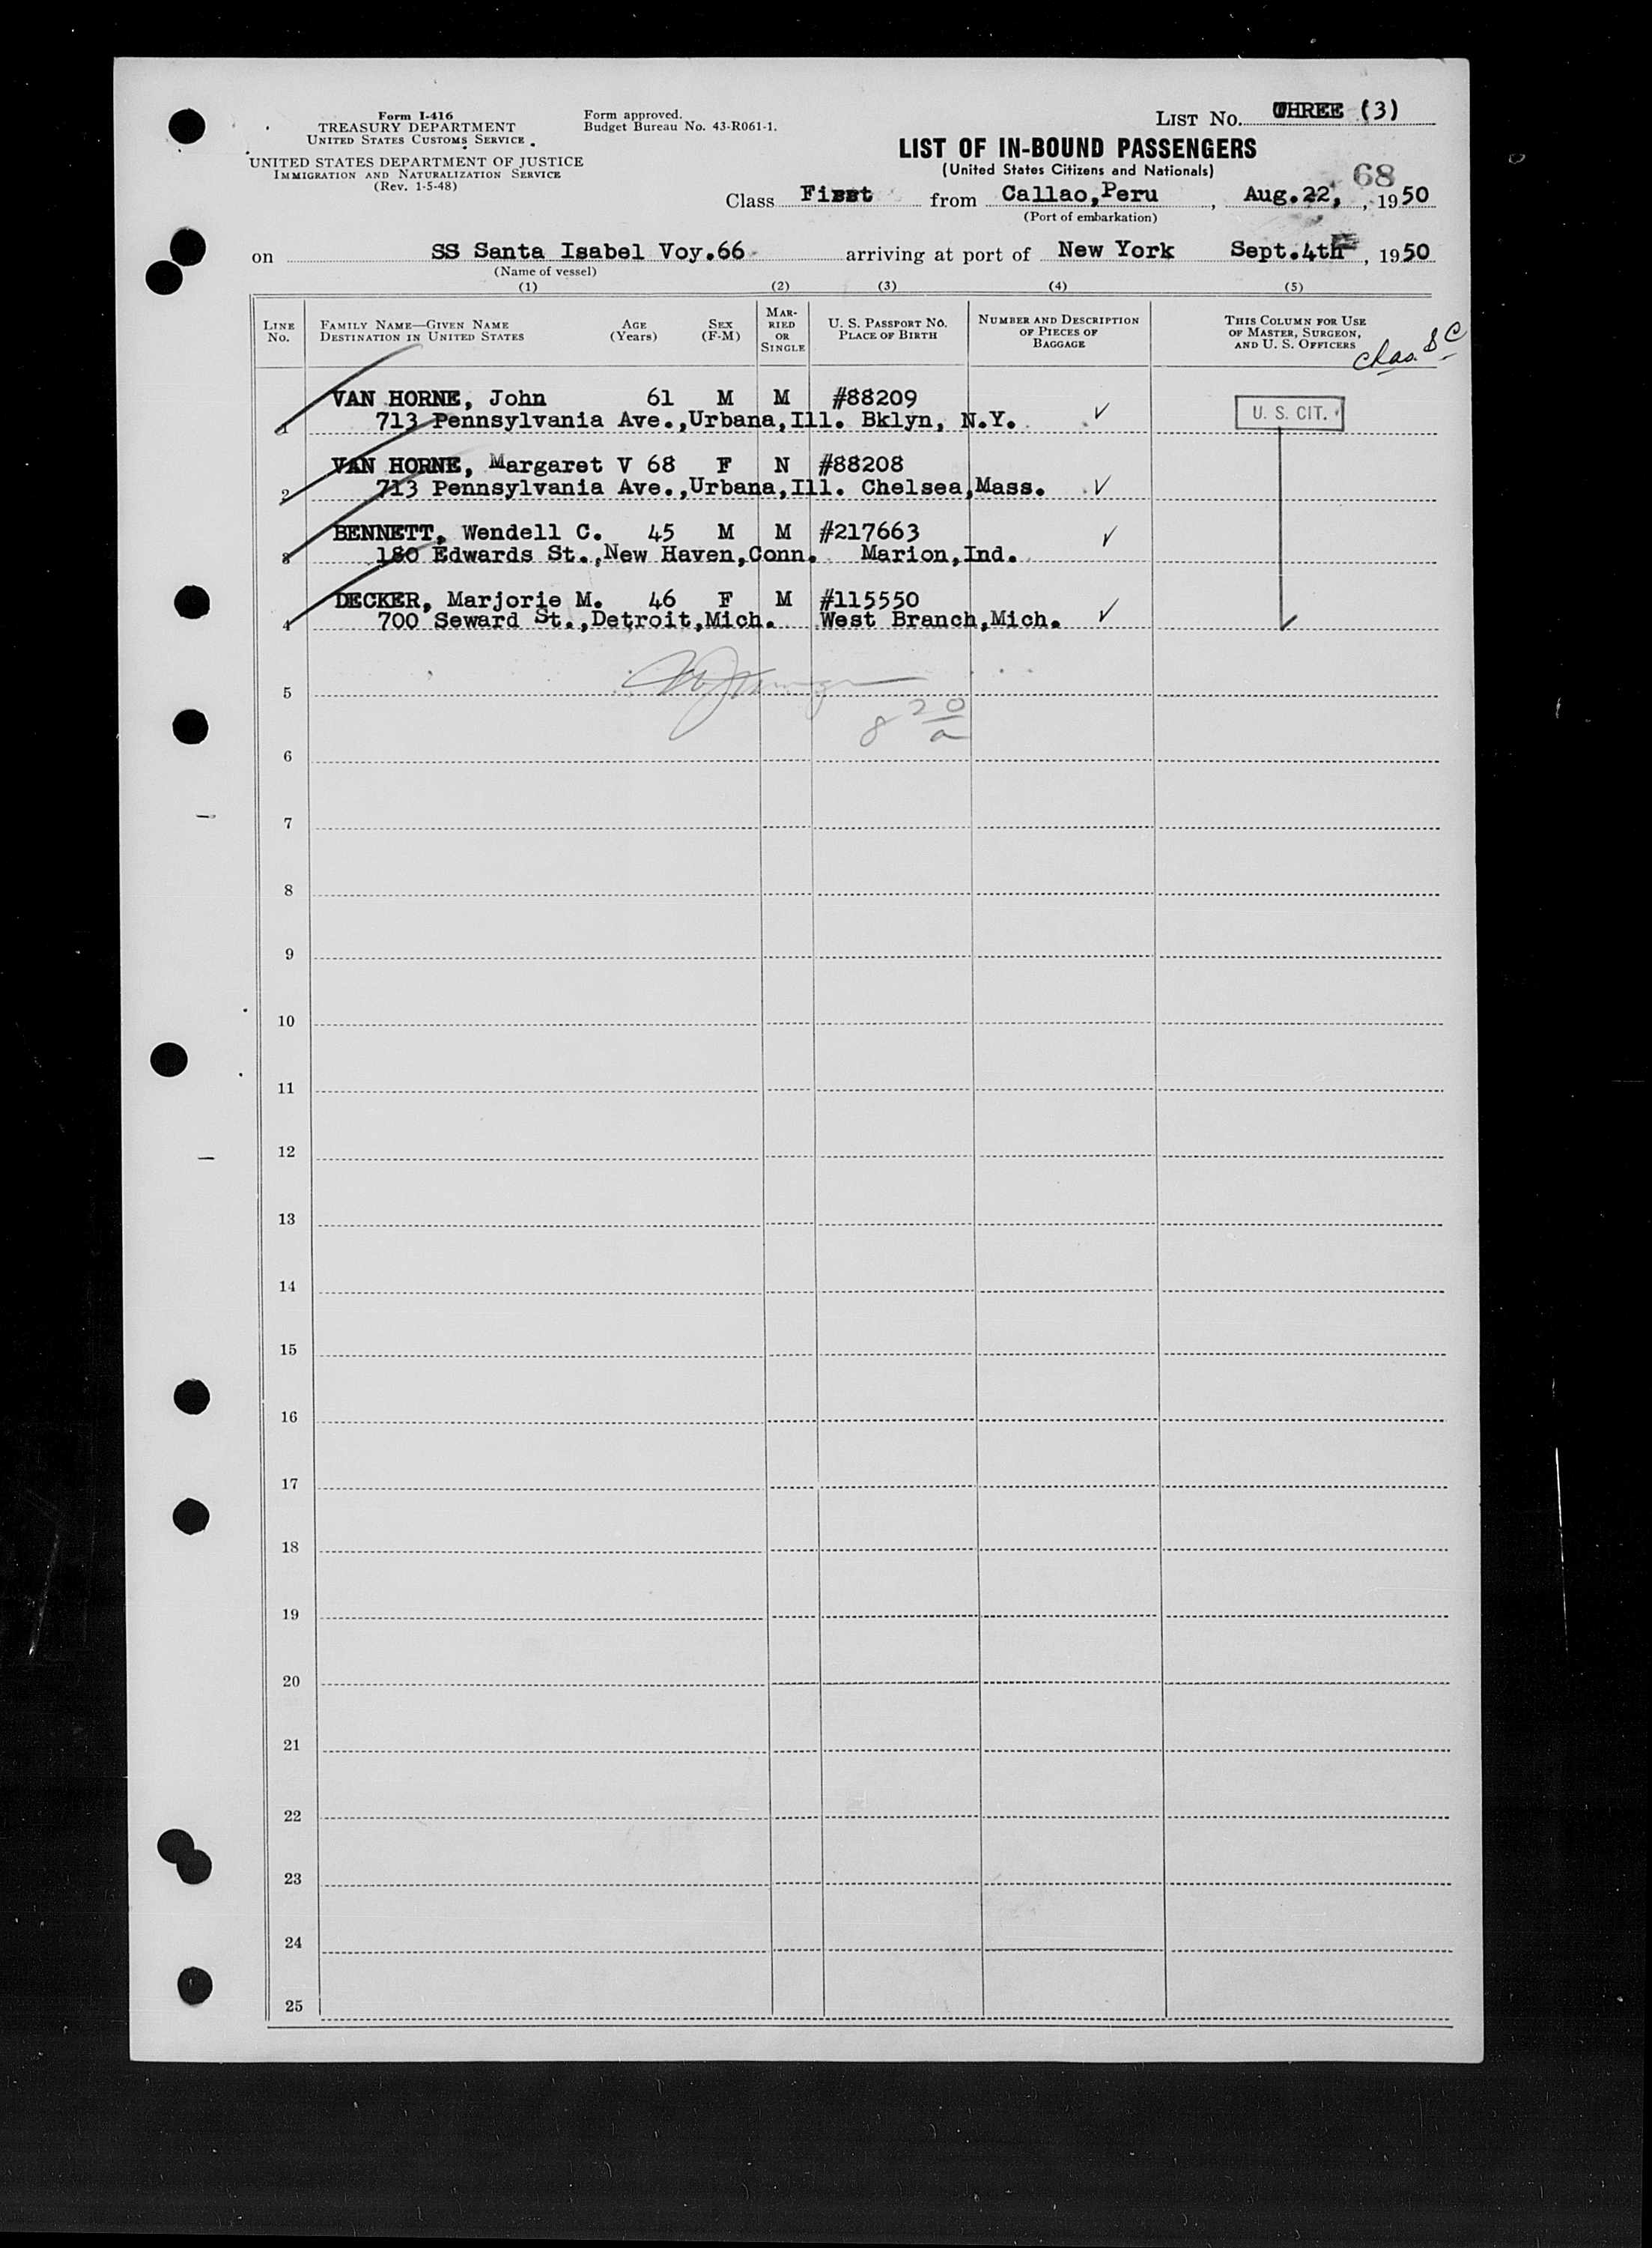 Form I-416
TREASURY DEPARTMENT
UNITED STATES CUSTOMS SERVICE
UNITED STATES DEPARTMENT OF JUSTICE
IMMIGRATION AND NATURALIZATION SERVICE
(Rev. 1-5-48)
Form approved.
Budget Bureau No. 43-R061-1.
LIST No. THREE (3)
LIST OF IN-BOUND PASSENGERS
(United States Citizens and Nationals)
68
Class First from Callao,Peru, Aug.22, , 1950
(Port of embarkation)
on SS Santa Isabel Voy.66 arriving at port of New York Sept.4th , 1950
(Name of vessel)
(1) (2) (3) (4) (5)
LINE No. FAMILY NAME—GIVEN NAME DESTINATION IN UNITED STATES AGE (Years) SEX (F-M) MARRIED OR SINGLE U. S. PASSPORT NO. PLACE OF BIRTH NUMBER AND DESCRIPTION OF PIECES OF BAGGAGE THIS COLUMN FOR USE OF MASTER, SURGEON, AND U. S. OFFICERS
VAN HORNE, John 61 M M #88209
1 713 Pennsylvania Ave.,Urbana,Ill. Bklyn, N.Y. ✓ U. S. CIT.
VAN HORNE, Margaret V 68 F N #88208
2 713 Pennsylvania Ave.,Urbana,Ill. Chelsea,Mass. ✓
BENNETT, Wendell C. 45 M M #217663
3 180 Edwards St.,New Haven,Conn. Marion,Ind. ✓
DECKER, Marjorie M. 46 F M #115550
4 700 Seward St.,Detroit,Mich. West Branch,Mich. ✓
5
6
7
8
9
10
11
12
13
14
15
16
17
18
19
20
21
22
23
24
25